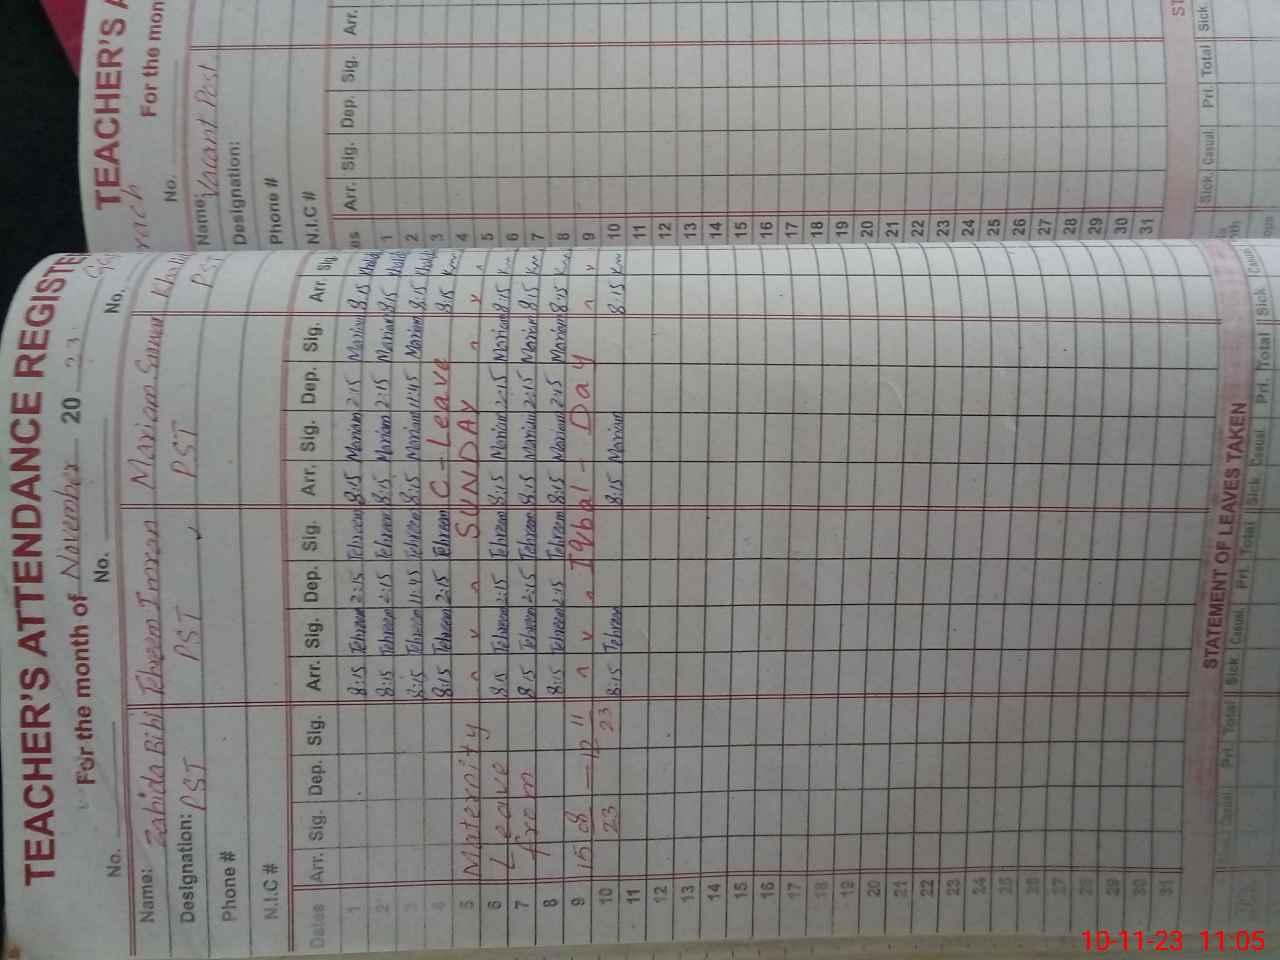 TEACHER'S ATTENDANCE REGISTE
For the month of November 20 23
No. No. No.
Name: Zahida Bibi Tehreem Imran Mariam Khalid
Designation: PST PST PST PST
Phone #
N.I.C #
Dates Arr. Sig. Dep. Sig. Arr. Sig. Dep. Sig. Arr. Sig. Dep. Sig. Arr. Sig.
1 8:15 Tehreem 2:15 Tehreem 8:15 Mariam 2:15 Mariam 8:15 Khalid
2 8:15 Tehreem 2:15 Tehreem 8:15 Mariam 2:15 Mariam 8:15 Khalid
3 8:15 Tehreem 11:45 Tehreem 8:15 Mariam 11:45 Mariam 8:15 Khalid
4 8:15 Tehreem 2:15 Tehreem C-Leave 8:15
5 Maternity SUNDAY
6 Leave 8:15 Tehreem 2:15 Tehreem 8:15 Mariam 2:15 Mariam 8:15
7 from 8:15 Tehreem 2:15 Tehreem 8:15 Mariam 2:15 Mariam 8:15
8 8:15 Tehreem 2:15 Tehreem 8:15 Mariam 2:15 Mariam 8:15
9 15 8 — 12 11 Iqbal - Day
10 23 23 8:15 Tehreem 8:15 Mariam 8:15
11
12
13
14
15
16
17
18
19
20
21
22
23
24
25
26
27
28
29
30
31
STATEMENT OF LEAVES TAKEN
Pri. Total Sick. Casual. Pri. Total Sick Casual Pri. Total Sick. Casual
TEACHER'S A
For the mon
No.
Name: Vacant Post
Designation:
Phone #
N.I.C #
es Arr. Sig. Dep. Sig. Arr.
1
2
3
4
5
6
7
8
9
10
11
12
13
14
15
16
17
18
19
20
21
22
23
24
25
26
27
28
29
30
31
ST
Sick. Casual. Pri. Total Sick.
10-11-23 11:05